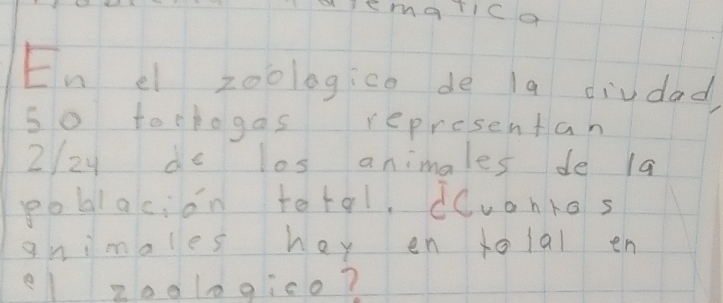 matica
En el zoologico de la ciudad,
50 tortogas representan
2/24 de los animales de la
población total. ¿Cuantos
animales hay en total en
el zoologico?